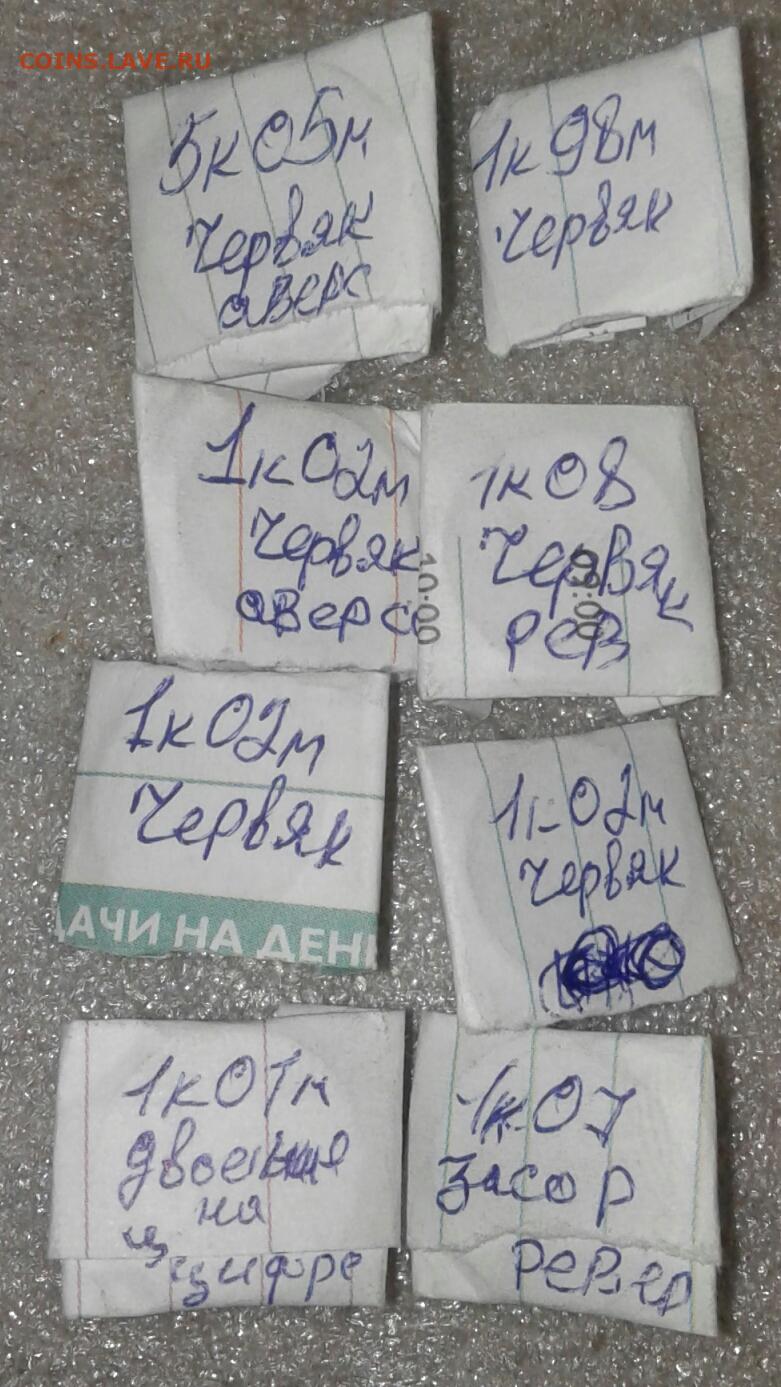 COINS.LAVE.RU
5к05м
Червяк
аверс
1к98м
Червяк
1к02м
Червяк
аверс
10:00
1к08
Червяк
рев
09:00
1к02м
Червяк
АЧИ НА ДЕН
1к02м
червяк
1к01м
двоение
на
цифре
1к07
Засор